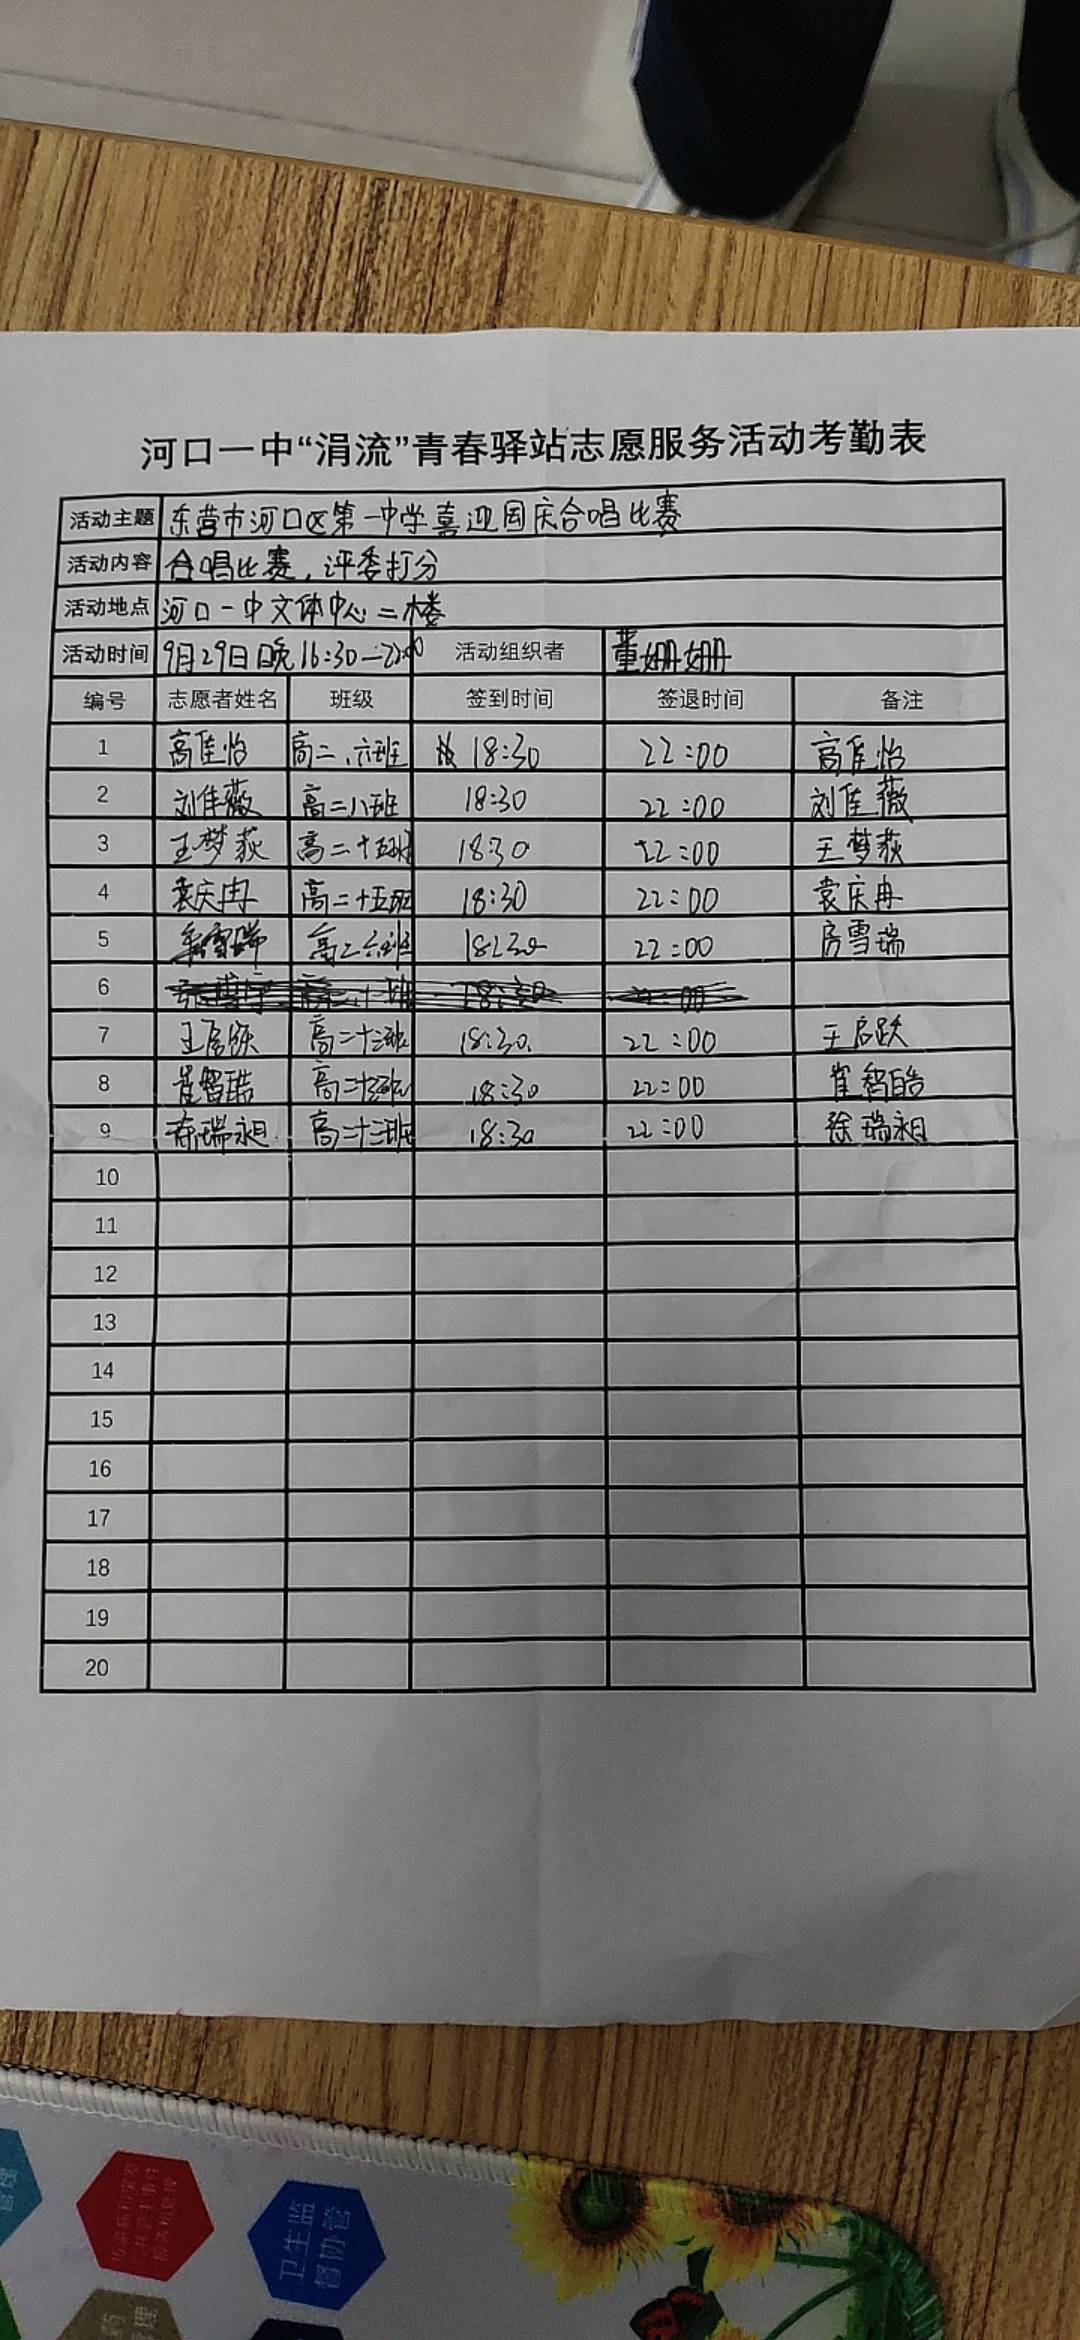 河口一中“涓流”青春驿站志愿服务活动考勤表
活动主题 东营市河口区第一中学喜迎国庆合唱比赛
活动内容 合唱比赛，评委打分
活动地点 河口一中文体中心二楼
活动时间 9月29日晚16:30—22:00 活动组织者 董姗姗
编号 志愿者姓名 班级 签到时间 签退时间 备注
1 高佳怡 高二、六班 18:30 22:00 高佳怡
2 刘佳薇 高二八班 18:30 22:00 刘佳薇
3 王梦荻 高二十五班 18:30 22:00 王梦荻
4 袁庆冉 高二十五班 18:30 22:00 袁庆冉
5 高二六班 18:30 22:00 房雪瑞
6
7 王启跃 高二十三班 18:30 22:00 王启跃
8 崔智皓 高二十三班 18:30 22:00 崔智皓
9 徐瑞昶 高二十三班 18:30 22:00 徐瑞昶
10
11
12
13
14
15
16
17
18
19
20
卫生监
督协管